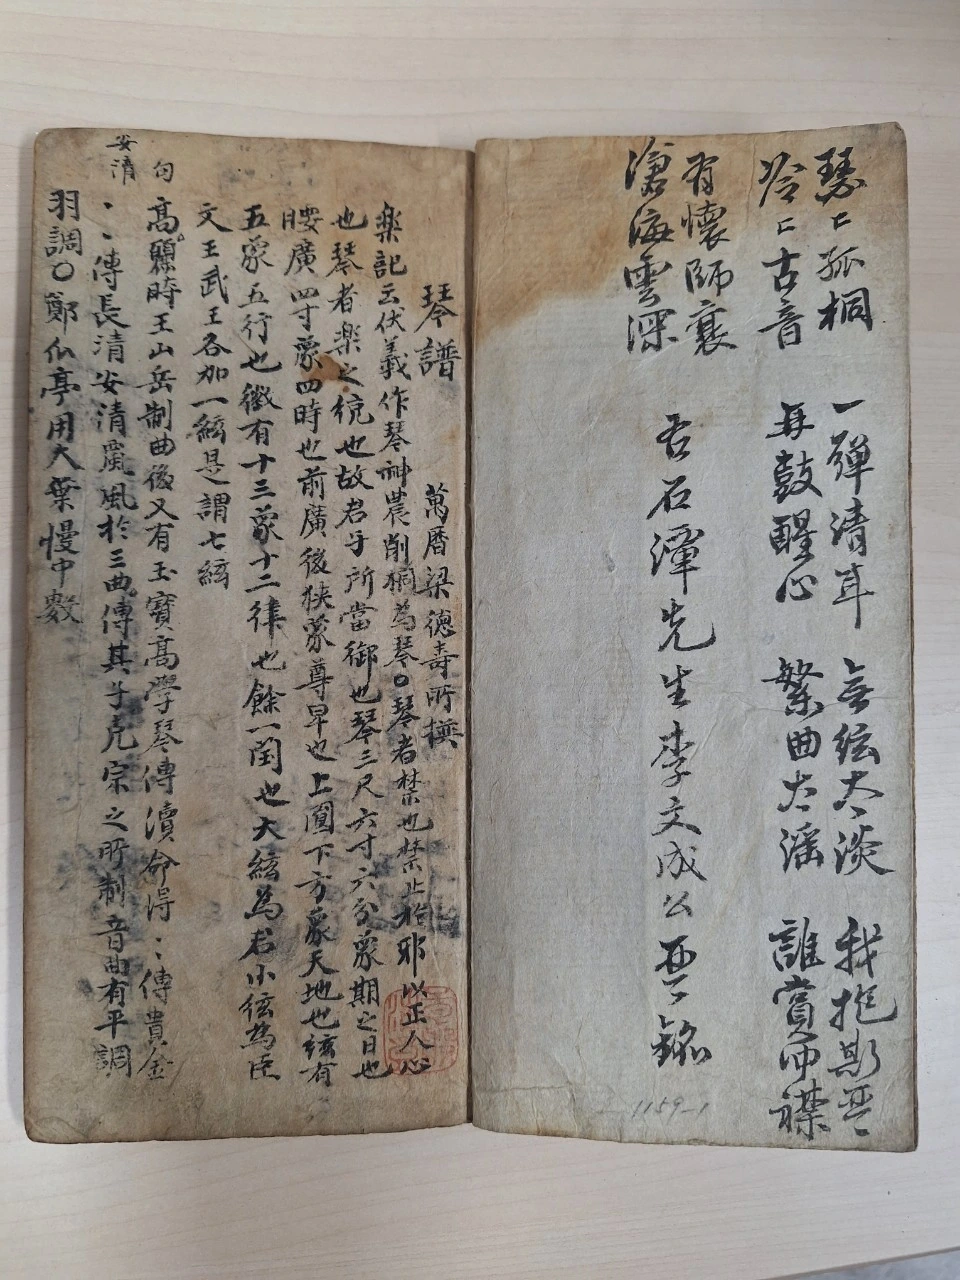 琴〻孤桐 一彈清耳 無絃太淡 我抱斯琴
冷〻古音 再鼓醒心 繁曲太滛 誰賞冲襟
有懷師襄
滄海雲深
右石潭先生李文成公琴銘
1159-1
琴譜 萬曆梁德壽所撰
樂記云伏羲作琴神農削桐為琴〇琴者禁也禁止於邪以正人心
也琴者樂之統也故君子所當御也琴三尺六寸六分象期之日也
腰廣四寸象四時也前廣後狹象尊卑也上圓下方象天地也絃有
五象五行也徽有十三象十二律也餘一閏也大絃為君小絃為臣
文王武王各加一絃是謂七絃
句
高麗時王山岳制曲後又有玉寶高學琴傳瀆命得〻傳貴金
安清
〻〻傳長清安清風於三曲傳其子克宗之所制音曲有平調
羽調〇鄭瓜亭用大葉慢中數